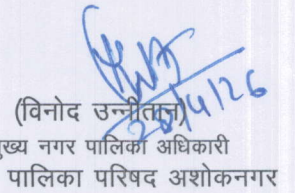 (विनोद उन्नीतान)
मुख्य नगर पालिका अधिकारी
पालिका परिषद अशोकनगर